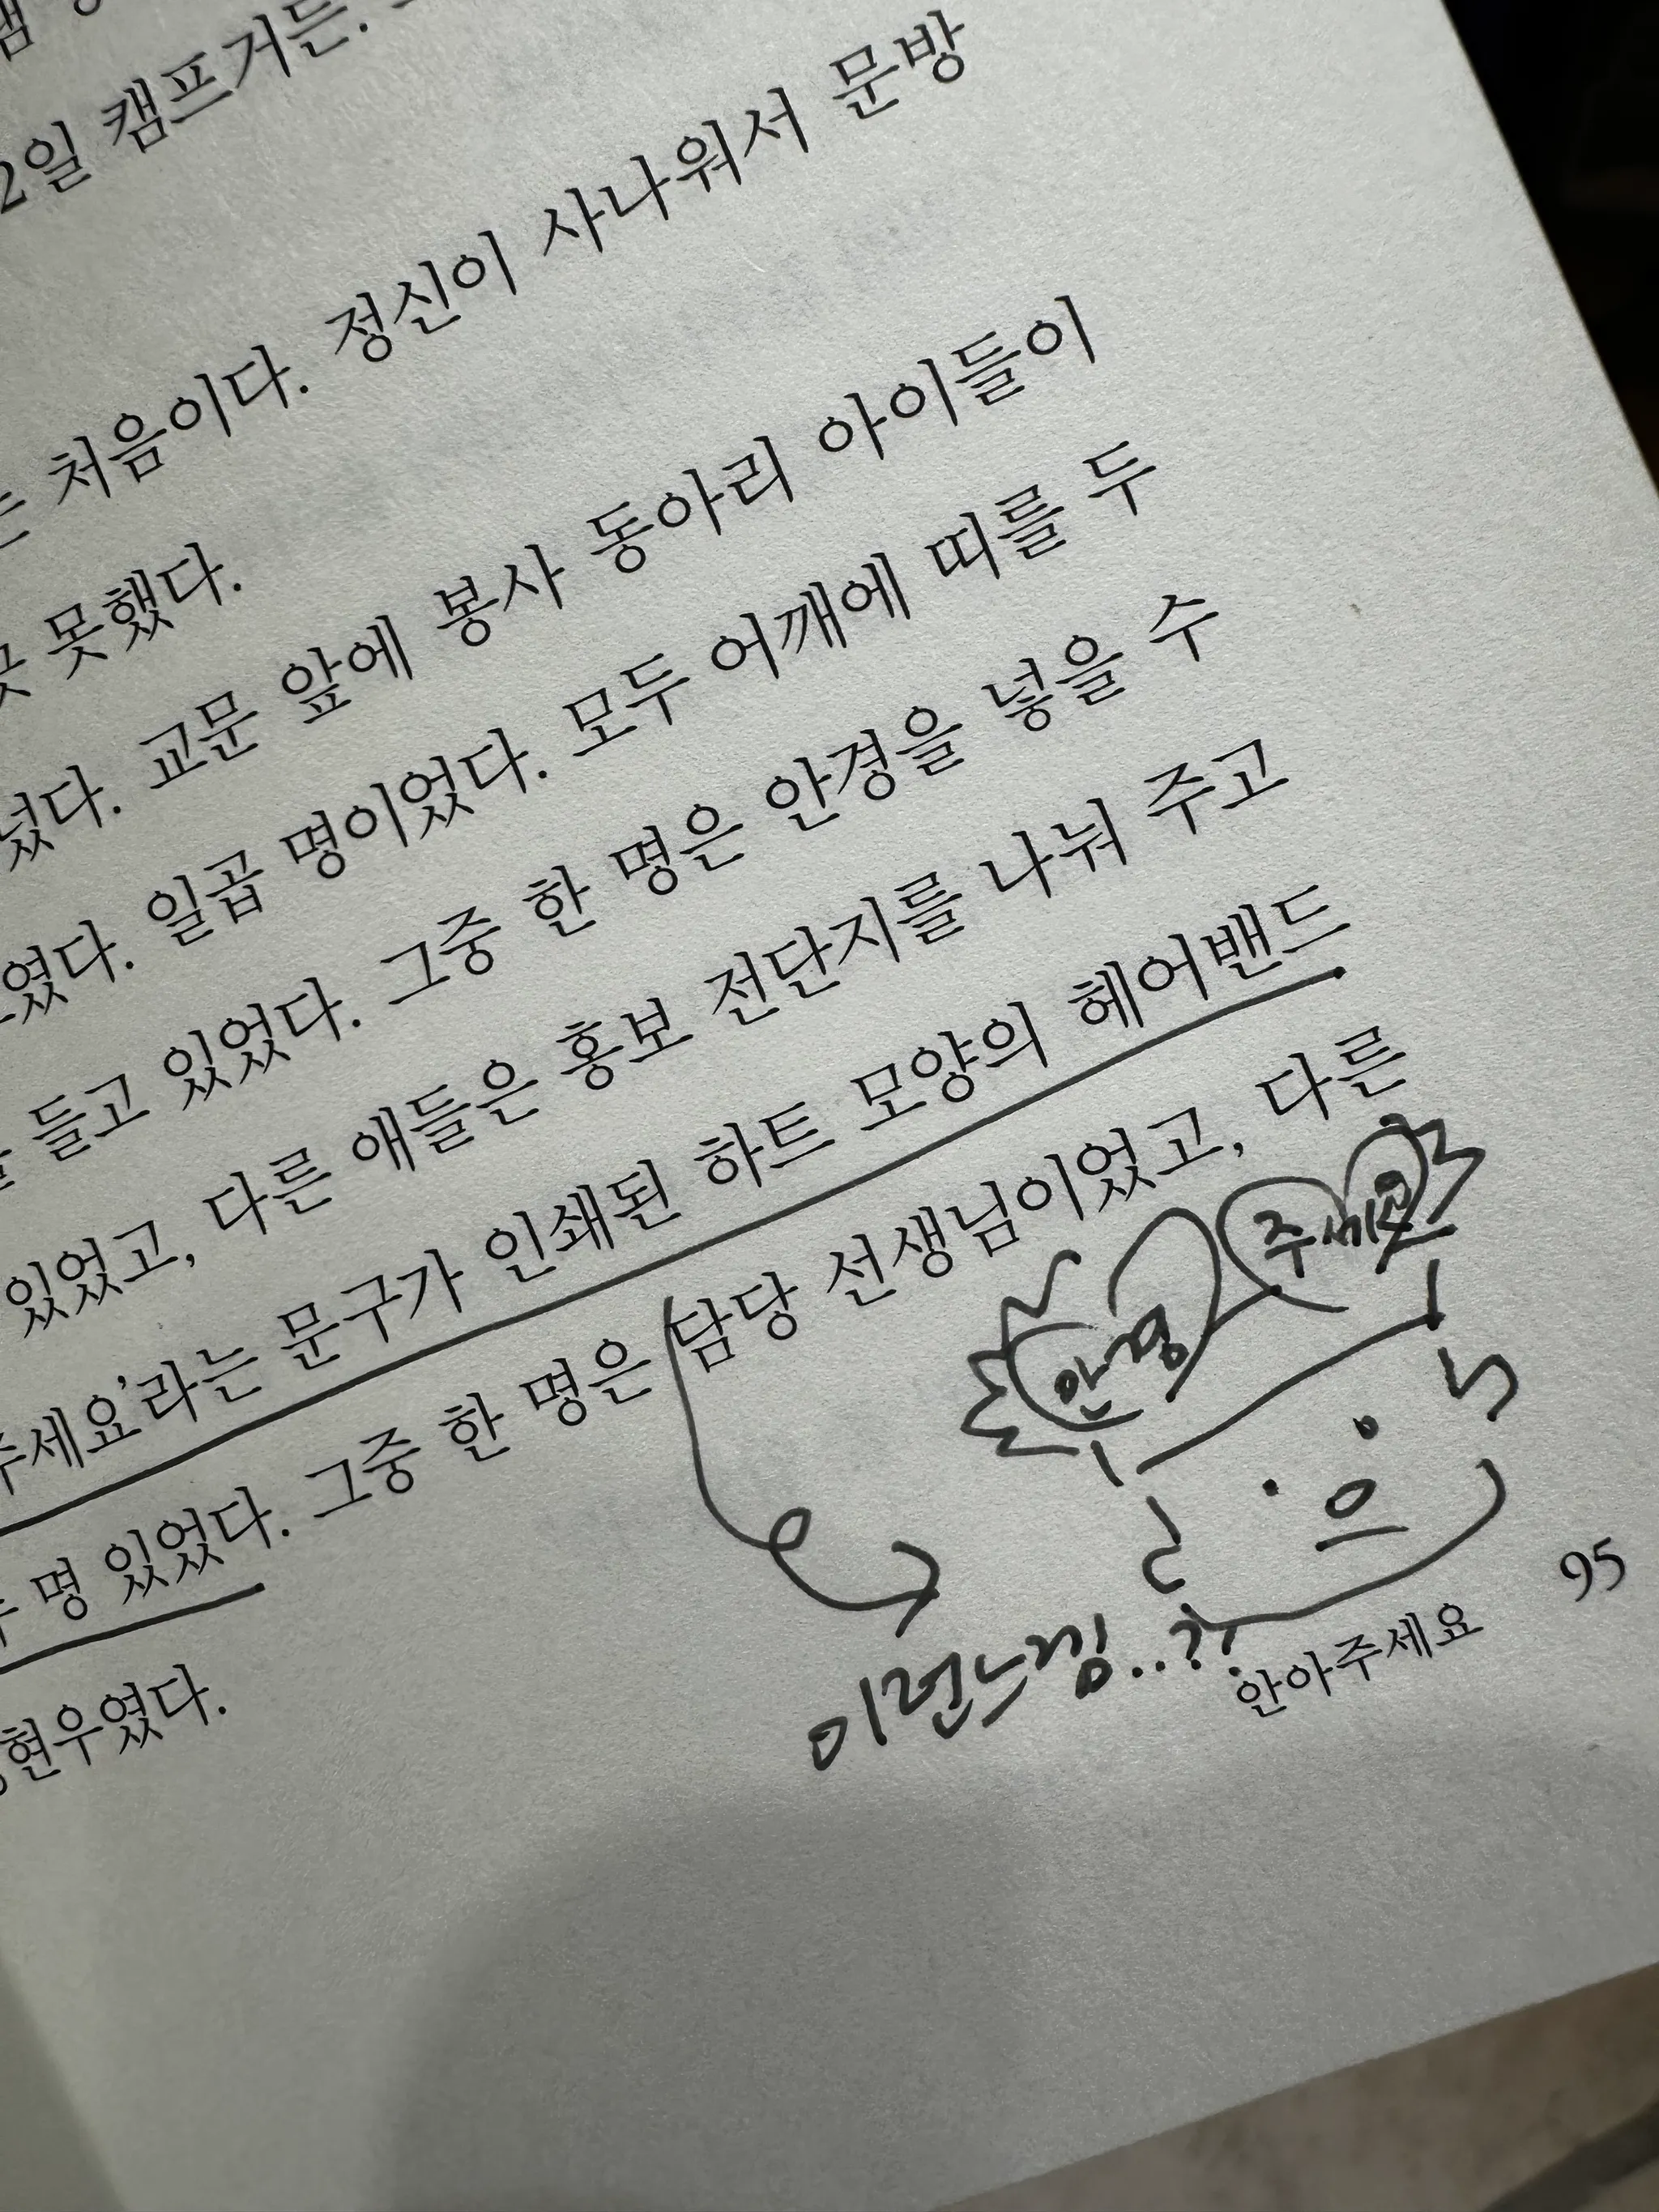 2일 캠프거든.
처음이다. 정신이 사나워서 문방
못했다.
넜다. 교문 앞에 봉사 동아리 아이들이
였다. 일곱 명이었다. 모두 어깨에 띠를 두
들고 있었다. 그중 한 명은 안경을 넣을 수
있었고, 다른 애들은 홍보 전단지를 나눠 주고
주세요'라는 문구가 인쇄된 하트 모양의 헤어밴드
명 있었다. 그중 한 명은 담당 선생님이었고, 다른
현우였다.
안경 주세요
이런느낌..??
안아주세요 95